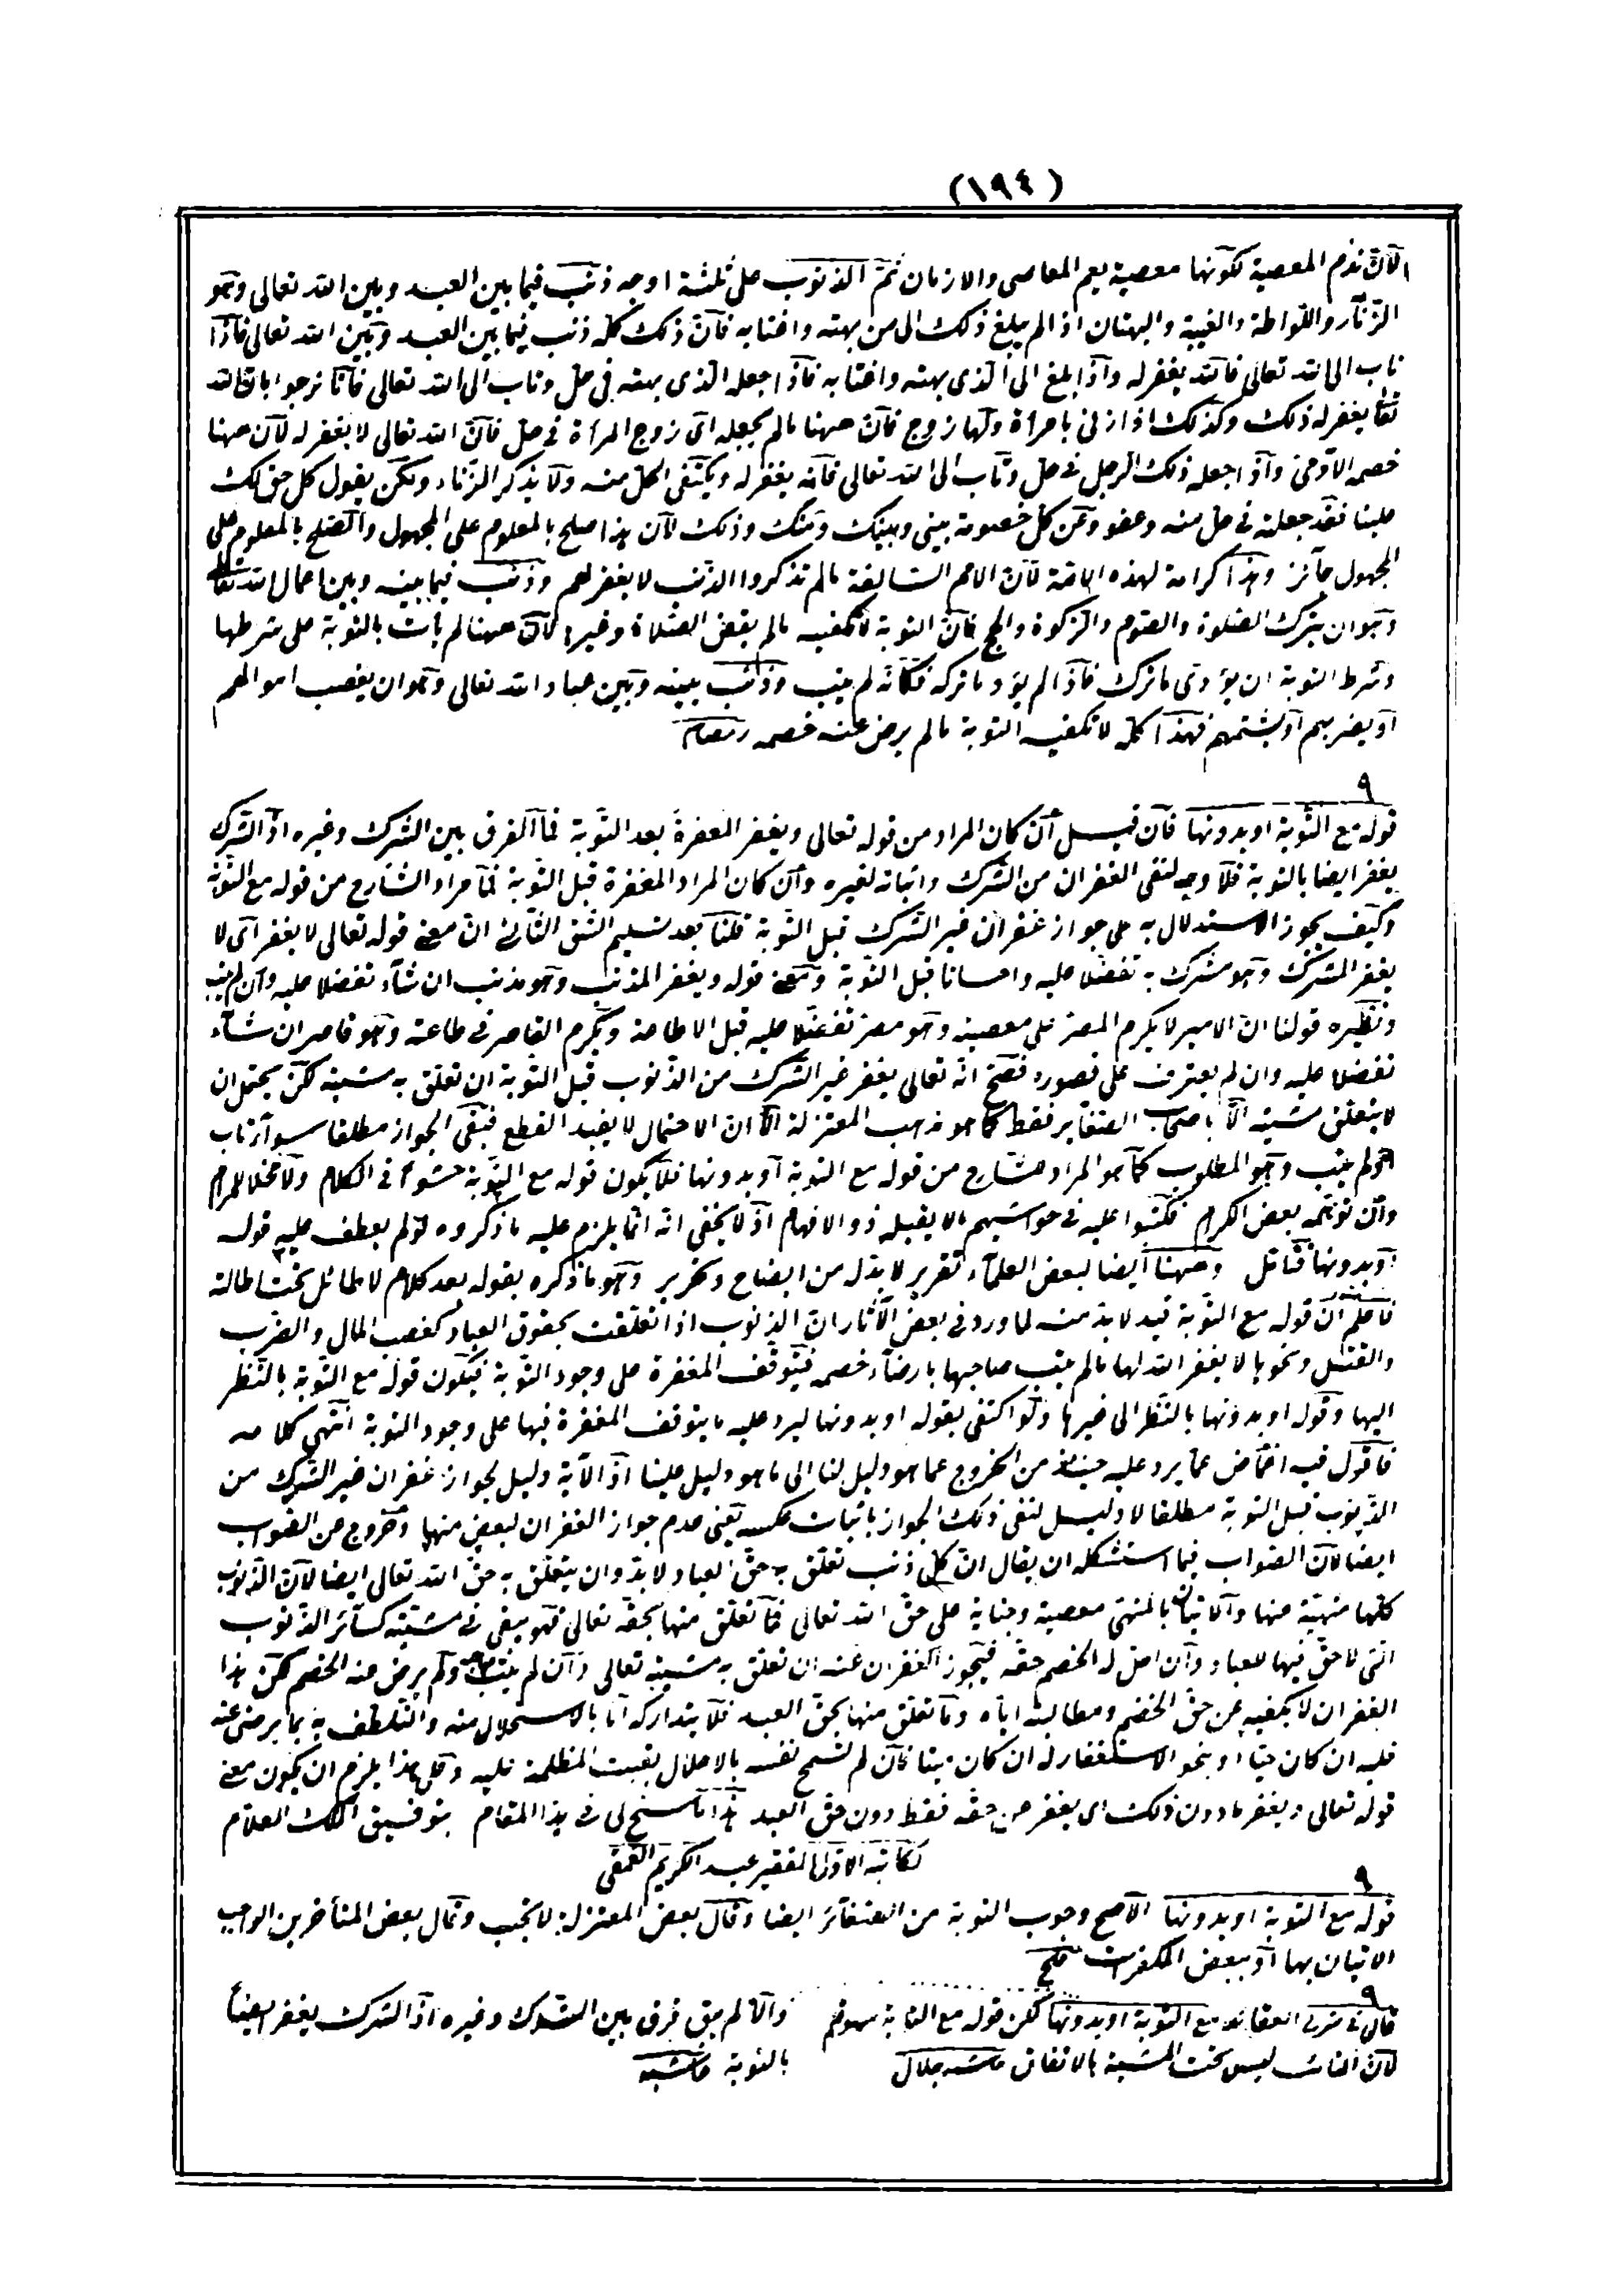 (١٩٤)
لان ندم المعصية لكونها معصية يعم المعاصى والازمان ثم الذنوب على ثلثة اوجه ذنب فيما بين العبد وبين الله تعالى وهو
الزنا واللواطة والغيبة والبهتان اذا لم يبلغ ذلك الى من بهته واغتابه فان ذلك كله ذنب فيما بين العبد وبين الله تعالى فاذا
تاب الى الله تعالى فالله يغفر له واذا بلغ الى الذى بهته واغتابه فاذا جعله الذى بهته فى حل وتاب الى الله تعالى فانا نرجوا بان الله
تعالى يغفر له ذلك وكذلك اذا زنى بامرأة ولها زوج فان ههنا مالم يجعله اى زوج المرأة فى حل فان الله تعالى لا يغفر له لان ههنا
خصمه الآدمى واذا جعله ذلك الرجل فى حل وتاب الى الله تعالى فانه يغفر له ويكتفى الحل منه ولا يذكر الزناء ولكن يقول كل حق لك
علينا فقد جعلته فى حل منه وعفو وعن كل خصومة بينى وبينك وذلك لان هذا صلح بالمعلوم على المجهول والصلح بالمعلوم على
المجهول جائز وهذا كرامة لهذه الامة لان الامم السالفة مالم تذكروا الذنب لا يغفر لهم وذنب فيما بينه وبين اعمال الله تعالى
وهو ان يترك الصلوة والصوم والزكوة والحج فان التوبة لا تكفيه مالم يقض الصلاة وغيرها لان ههنا لم يأت بالتوبة على شرطها
وشرط التوبة ان يؤدى ما ترك فاذا لم يؤد ما تركه فكأنه لم يتب وذنب بينه وبين عباد الله تعالى وهو ان يغصب اموالهم
او يضربهم او يشتمهم فهذا كله لا تكفيه التوبة مالم يرض عنه خصمه رمضان
٩
قوله مع التوبة او بدونها فان قيل ان كان المراد من قوله تعالى ويغفر المغفرة بعد التوبة فما الفرق بين الشرك وغيره اذ الشرك
يغفر ايضا بالتوبة فلا وجه لنفى الغفران من الشرك واثباته لغيره وان كان المراد المغفرة قبل التوبة فما مراد الشارح من قوله مع التوبة
وكيف يجوز الاستدلال به على جواز غفران غير الشرك قبل التوبة قلنا بعد تسليم الشق الثانى ان معنى قوله تعالى لا يغفر اى لا
يغفر المشرك وهو مشرك به تفضلا عليه واحسانا قبل التوبة ومعنى قوله ويغفر المذنب وهو مذنب ان شاء تفضلا عليه وان لم يتب
ونظيره قولنا ان الامير لا يكرم المصر على معصيته وهو مصر تفضلا عليه قبل الاطاعة ويكرم القاصر فى طاعته وهو قاصر ان شاء
تفضلا عليه وان لم يعترف على قصوره فصح انه تعالى يغفر غير الشرك من الذنوب قبل التوبة ان تعلق به مشيته لكن يحتمل ان
لا يتعلق مشيته الا باصحاب الصغاير فقط كما هو مذهب المعتزلة الا ان الاحتمال لا يفيد القطع فبقى الجواز مطلقا سواء تاب
او لم يتب وهو المطلوب كما هو المراد للشارح من قوله مع التوبة او بدونها فلا يكون قوله مع التوبة حشوا فى الكلام ولا مخلا للمرام
وان توهمه بعض الكرام فكتبوا عليه فى حواشيهم مالا يقبله ذو الافهام اذ لا يخفى انه انما يلزم عليه ما ذكروه لو لم يعطف عليه قوله
او بدونها فتأمل وههنا ايضا لبعض العلماء تقرير لا بد له من ايضاح وتحرير وهو ما ذكره بقوله بعد كلام لا طائل تحت اطالته
فاعلم ان قوله مع التوبة قيد لا بد منه لما ورد فى بعض الآثار ان الذنوب اذا تعلقت بحقوق العباد كغصب المال والضرب
والقتل ونحوها لا يغفر الله لها مالم يتب صاحبها بارضاء خصمه فيتوقف المغفرة على وجود التوبة فيكون قوله مع التوبة بالنظر
اليها وقوله او بدونها بالنظر الى غيرها ولو اكتفى بقوله او بدونها ليرد عليه ما يتوقف المغفرة فيها على وجود التوبة انتهى كلامه
فاقول فيه اغماض عما يرد عليه حينئذ من الخروج عما هو دليل لنا الى ما هو دليل علينا اذ الآية دليل لجواز غفران غير الشرك من
الذنوب قبل التوبة مطلقا لا دليل لنفى ذلك الجواز باثبات عكسه يعنى عدم جواز الغفران لبعض منها وخروج عن الصواب
ايضا لان الصواب فيما استشكله ان يقال ان كل ذنب تعلق به حق العباد لا بد وان يتعلق به حق الله تعالى ايضا لان الذنوب
كلها منهية منها والاتيان بالمنهى معصية وجناية على حق الله تعالى فما تعلق منها بحقه تعالى فهو يبقى فى مشيته كسائر الذنوب
التى لا حق فيها للعباد وان احل له الخصم حقه فيجوز الغفران عنه ان تعلق به مشيته تعالى وان لم يتب ولم يرض عنه الخصم لكن هذا
الغفران لا يكفيه عن حق الخصم ومطالبته اياه وما تعلق منها بحق العبد فلا يتداركه الا بالاستحلال منه والتلطف به بما يرضى عنه
قلبه ان كان حيا او بنحو الاستغفار له ان كان ميتا فان لم تسمح نفسه بالاحلال بقيت المظلمة عليه وعلى هذا يلزم ان يكون معنى
قوله تعالى ويغفر مادون ذلك اى يغفر من حقه فقط دون حق العبد هذا ما سنح لى فى هذا المقام بتوفيق الملك العلام
لكاتبه الاول الفقير عبد الكريم القمقى
٩
قوله مع التوبة او بدونها الاصح وجوب التوبة من الصغائر ايضا وقال بعض المعتزلة لا يجب وقال بعض المتأخرين الواجب
الاتيان بها او ببعض المكفرات
٩
قال فى شرح العقائد مع التوبة او بدونها لكن قوله مع التوبة سهو قلم
لان التائب ليس تحت المشية بالاتفاق جلال
والا لم يبق فرق بين الشرك وغيره اذ الشرك يغفر ايضا
بالتوبة